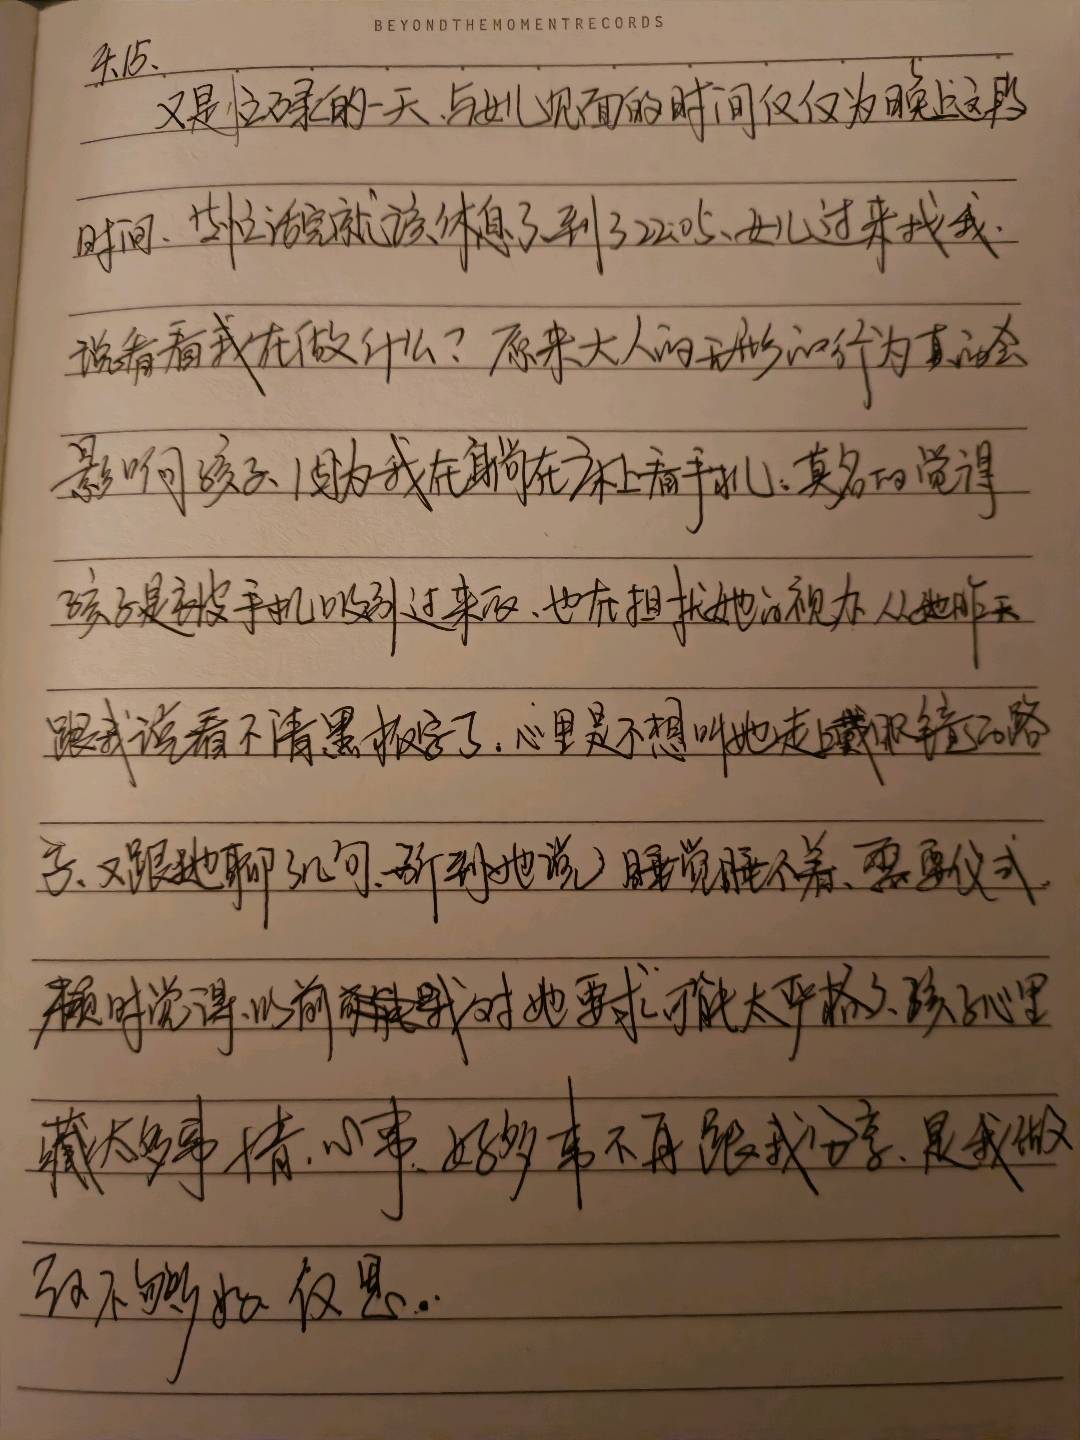 BEYONDTHEMOMENTRECORDS
天15、
又是忙碌的一天、与女儿见面的时间仅仅为晚上这段
时间、忙活完就该休息了、到了22:05、女儿过来找我.
说看看我在做什么？原来大人的无形的行为真的会
影响孩子、因为我在躺在床上看手机、莫名的觉得
孩子是被手机吸引过来的、也在担扰她的视力 从她昨天
跟我说看不清黑板字了、心里是不想叫她走上戴眼镜的路
子、又跟她聊了几句、听到她说睡觉睡不着、需要仪式.
顿时觉得、以前我对她要求可能太严格了、孩子心里
藏太多事情、心事、好多事不再跟我分享、是我做
的不够好 反思...